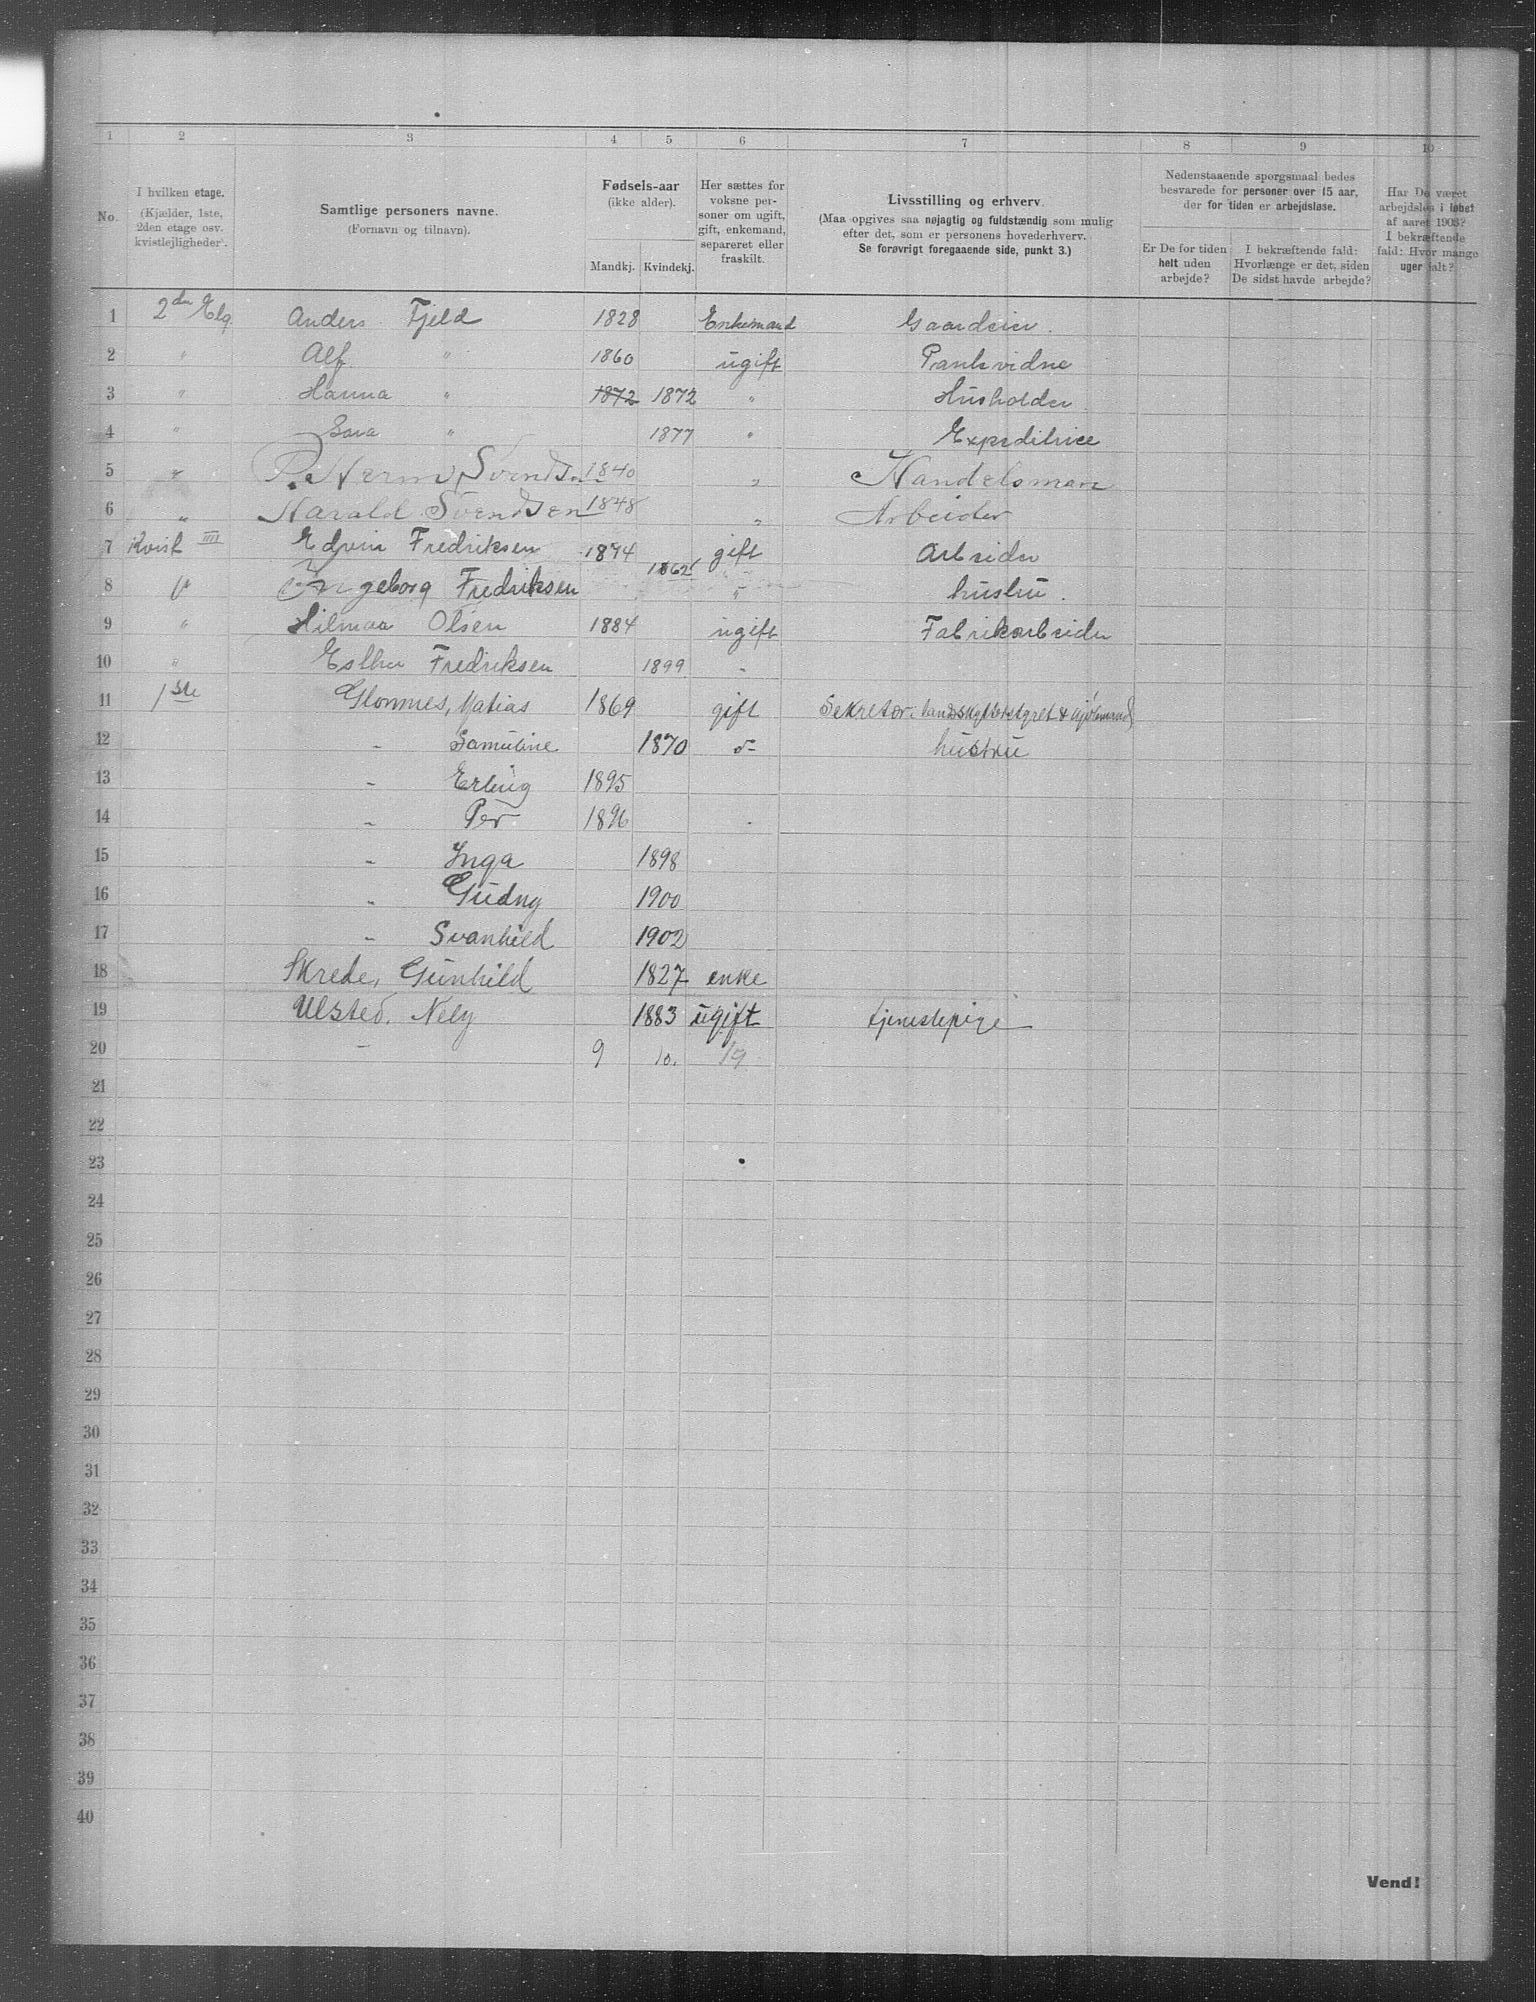 1 2 3 4 5 6 7 8 9 10
No.
I hvilken etage.
(Kjælder, 1ste,
2den etage osv.
kvistlejligheder).
Samtlige personers navne.
(Fornavn og tilnavn).
Fødsels-aar
(ikke alder).
Mandkj. Kvindekj.
Her sættes for
voksne per-
soner om ugift,
gift, enkemand,
separeret eller
fraskilt.
Livsstilling og erhverv.
(Maa opgives saa nøjagtig og fuldstændig som mulig
efter det, som er personens hovederhverv.
Se forøvrigt foregaaende side, punkt 3.)
Nedenstaaende spørgsmaal bedes
besvarede for personer over 15 aar,
der for tiden er arbejdsløse.
Er De for tiden
helt uden
arbejde?
I bekræftende fald:
Hvorlænge er det, siden
De sidst havde arbejde?
Har De været
arbejdsløs i løbet
af aaret 1903?
I bekræftende
fald: Hvor mange
uger ialt?
1 2den Etg. Anders Fjeld 1828 Enkemand Gaardeier.
2 " Alf " 1860 ugift
3 " Hanna " 1872 1872 " Husholder
4 " Sara " 1877 " Expeditrice
5 " Svendsen 1840 " Handelsman
6 " Harald Svendsen 1848 " Arbeider
7 Kvist III Edvin Fredriksen 1874 gift Arbeider
8 " Ingeborg Fredriksen 1862 " hustru.
9 " Hilmaa Olsen 1884 ugift Fabrikarbeider
10 " Esther Fredriksen 1899 -
11 1ste Glomnes, Matias 1869 gift Sekretær i
12 - Samuline 1870 d- hustru
13 - Erling 1895
14 - Per 1896
15 - Inga 1898
16 - Gudny 1900
17 - Svanhild 1902
18 Skrede, Gunhild 1827 enke
19 Ulsted, Nely 1883 ugift tjenestepige
20 - 9 10. 19
21
22
23
24
25
26
27
28
29
30
31
32
33
34
35
36
37
38
39
40
Vend!